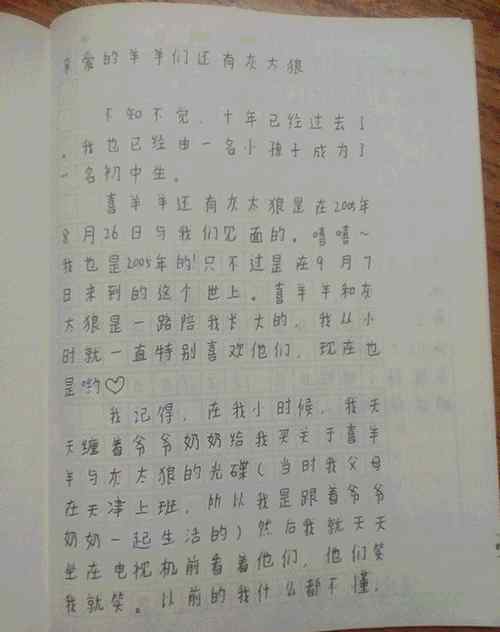 亲爱的羊羊们还有灰太狼
不知不觉，十年已经过去了
。我也已经由一名小孩子成为了
一名初中生。
喜羊羊还有灰太狼是在2005年
8月26日与我们见面的。嘻嘻~
我也是2005年的!只不过是在9月7
日来到的这个世上。喜羊羊和灰
太狼是一路陪我长大的，我从小
时就一直特别喜欢他们，现在也
是哟♡
我记得，在我小时候，我天
天缠着爷爷奶奶给我买关于喜羊
羊与灰太狼的光碟(当时我父母
在天津上班，所以我是跟着爷爷
奶奶一起生活的)然后我就天天
坐在电视机前看着他们，他们笑
我就笑。以前的我什么都不懂，